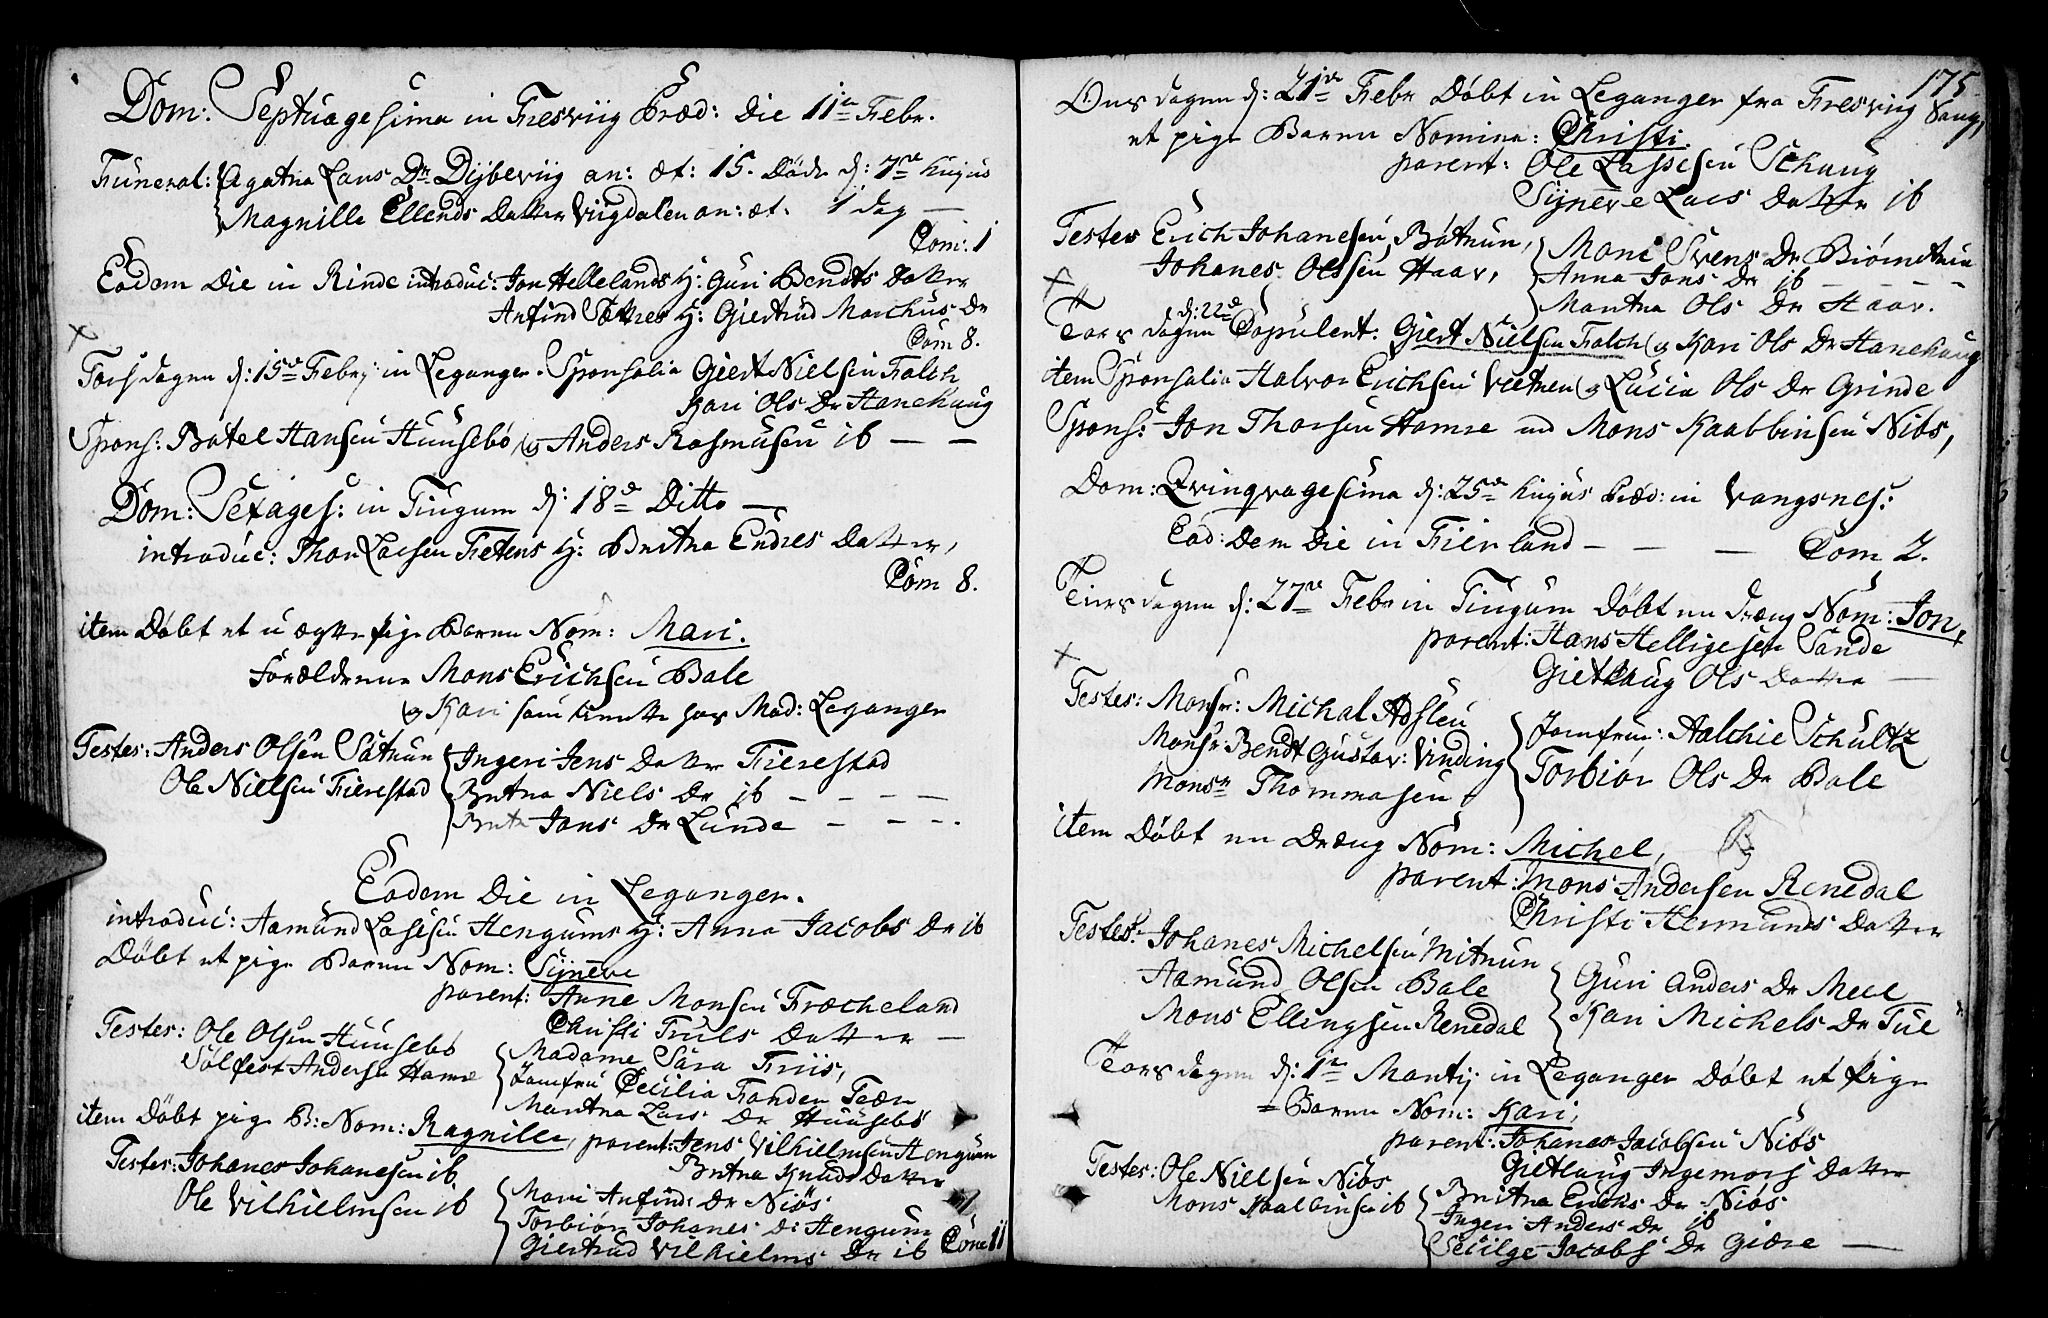 Dom: Septuagesima in Fresviig Præd: Die 11te Febr.
Funerat: Agatha Lars Dr Dybeviig an: æt: 15. Døde d: 7de hujus
Magnille Ellends Datter Viigdalen an: æt. 1 dag —
Com: 1
Eodem Die in Rinde introduc: Jon Hellelands H: Guri Bendts Datter
Anfind H: Giertrud Marchus Dr
Com 8.
Torsdagen d: 15de Febr: in Leganger. Sponsalia Giert Nielsen Falch
Kari Ols Dr Hanehaug
Spons: Botel Hansen Huusebø, og Anders Rasmusen ib — —
Dom: Sexages: in Tingum d: 18de Ditto —
introduc: Thor Larsen Fetens H: Britha Endres Datter,
Com 8.
item Døbt et uægte pige Barn Nom: Mari.
Forældrene Mons Erichsen Bale
og Kari som tiente hos Mad: Leganger
Testes: Anders Olsen Søtnun Ingeri Jens Datter Fierestad
Ole Nielsen Fierestad Britha Niels Dr ib — — — —
Brita Jons Dr Lunde — — —.
Eodem Die in Leganger.
introduc: Aamund Lassesen Hengums H: Anna Jacobs Dr ib
Døbt et pige Barn Nom: Synneve
parent: Arne Monsen Fræcheland
Christi Truls Datter —
Testes: Ole Olsen Huusebø Madame Sara Friis,
Sølfest Andersen Hamre Jomfru Cecilia Fonden Teen
Martha Lars Dr Huusebø
item Døbt pige B: Nom: Ragnille, parent: Jens Vilhielmsen Hengum
Testes: Johanes Johanesen ib. Britha Knuds Datter
Ole Vilhielmsen ib Mari Anfinds Dr Niøs
Torbiør Johanes Dr Hengum
Giertrud Vilhielms Dr ib Com 11
175
Onsdagen d: 21de Febr Døbt in Leganger fra Fresviig Sang,
et pige Barn Nomine: Christi.
parent: Ole Lassesen Schaug
Synneve Lars Datter ib
Testes Erich Johanesen Bøtnun, Mari Svens Dr Biørnetun
Johanes Olssen Haar, Anna Jons Dr ib — — — —
Martha Ols Dr Haar.
Torsdagen d: 22de Copulent: Giert Nielsen Falch og Kari Ols Dr Hanehaug
item Sponsalia Halvor Erichsen Vetnen og Lucia Ols Dr Grinde
Spons: Jon Thorsen Hamre und Mons Kaabbiusen Niøs,
Dom: Qvinqvagesima d: 25de hujus Præd: in Vangsnes:
Eod: Dem Die in Fierland — — — Com 2.
Tiirsdagen d: 27de Febr in Tingum Døbt en dræng Nom: Jon,
parent: Hans Helligesen Sande
Gietlaug Ols Datter —
Testes: Monsr: Michal Adslev Jomfrue: Aalchie Schultz
Monsr Bendt Gustav: Vinding Torbiør Ols Dr Bale
Monsr Thommasen
item Døbt en Dræng Nom: Michel,
parent: Mons Andersen Renedal
Christi Hermunds Datter
Testes: Johanes Michelsen Mitnun Guri Anders Dr Meel
Aamund Olsen Bale Kari Michels Dr Tue
Mons Ellingsen Renedal
Torsdagen d: 1te Martij in Leganger Døbt et pige
= Barn Nom: Kari,
parent: Johanes Jacobsen Niøs
Gietlaug Ingemors Datter
Testes: Ole Nielsen Niøs Britha Erichs Dr Niøs
Mons Kaabbiusen ib Ingeri Anders Dr ib
Secilge Jacobs Dr Giære —